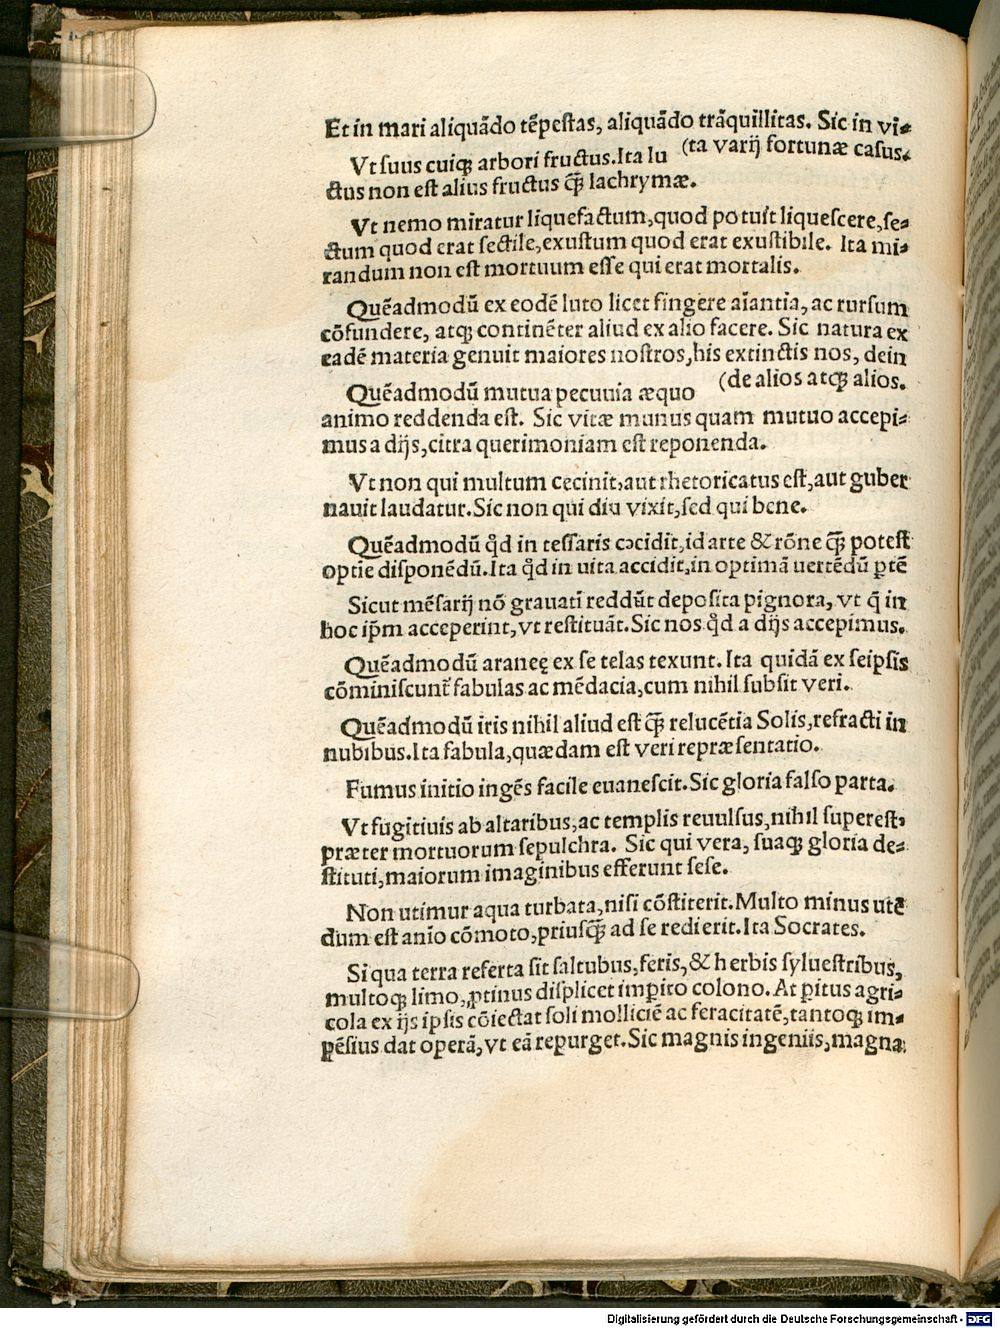 Et in mari aliquãdo tẽpestas, aliquãdo trãquillitas. Sic in vi-
(ta varij fortunæ casus.
Vt suus cuiqꝫ arbori fructus. Ita lu
ctus non est alius fructus ꝙ̃ lachrymæ.
Vt nemo miratur liquefactum, quod potuit liquescere, se-
ctum quod erat sectile, exustum quod erat exustibile. Ita mi-
randum non est mortuum esse qui erat mortalis.
Quẽadmodũ ex eodẽ luto licet fingere aĩantia, ac rursum
cõfundere, atqꝫ continẽter aliud ex alio facere. Sic natura ex
eadẽ materia genuit maiores nostros, his extinctis nos, dein
(de alios atqꝫ alios.
Quẽadmodũ mutua pecunia æquo
animo reddenda est. Sic vitæ munus quam mutuo accepi-
mus a dijs, citra querimoniam est reponenda.
Vt non qui multum cecinit, aut rhetoricatus est, aut guber
nauit laudatur. Sic non qui diu vixit, sed qui bene.
Quẽadmodũ qd̉ in tessaris cecidit, id arte & rõne ꝙ̃ potest
optie disponẽdũ. Ita qd̉ in uita accidit, in optimã uertẽdũ ꝑtẽ
Sicut mẽsarij nõ grauati reddũt deposita pignora, vt q̃ in
hoc ip̃m acceperint, vt restituãt. Sic nos qd̉ a dijs accepimus.
Quẽadmodũ araneę ex se telas texunt. Ita quidã ex seipsis
cõminiscunt᷑ fabulas ac mẽdacia, cum nihil subsit veri.
Quẽadmodũ iris nihil aliud est ꝙ̃ relucẽtia Solis, refracti in
nubibus. Ita fabula, quædam est veri repræsentatio.
Fumus initio ingẽs facile euanescit. Sic gloria falso parta.
Vt fugitiuis ab altaribus, ac templis reuulsus, nihil superest,
præter mortuorum sepulchra. Sic qui vera, suaqꝫ gloria de-
stituti, maiorum imaginibus efferunt sese.
Non utimur aqua turbata, nisi cõstiterit. Multo minus utẽ
dum est anio cõmoto, priusꝙ̃ ad se redierit. Ita Socrates.
Si qua terra referta sit saltubus, feris, & herbis syluestribus,
multoqꝫ limo, ꝓtinus displicet imꝑito colono. At ꝑitus agri-
cola ex ijs ipsis cõiectat soli molliciẽ ac feracitatẽ, tantoqꝫ im-
pẽsius dat operã, vt eã repurget. Sic magnis ingeniis, magna
Digitalisierung gefördert durch die Deutsche Forschungsgemeinschaft - DFG